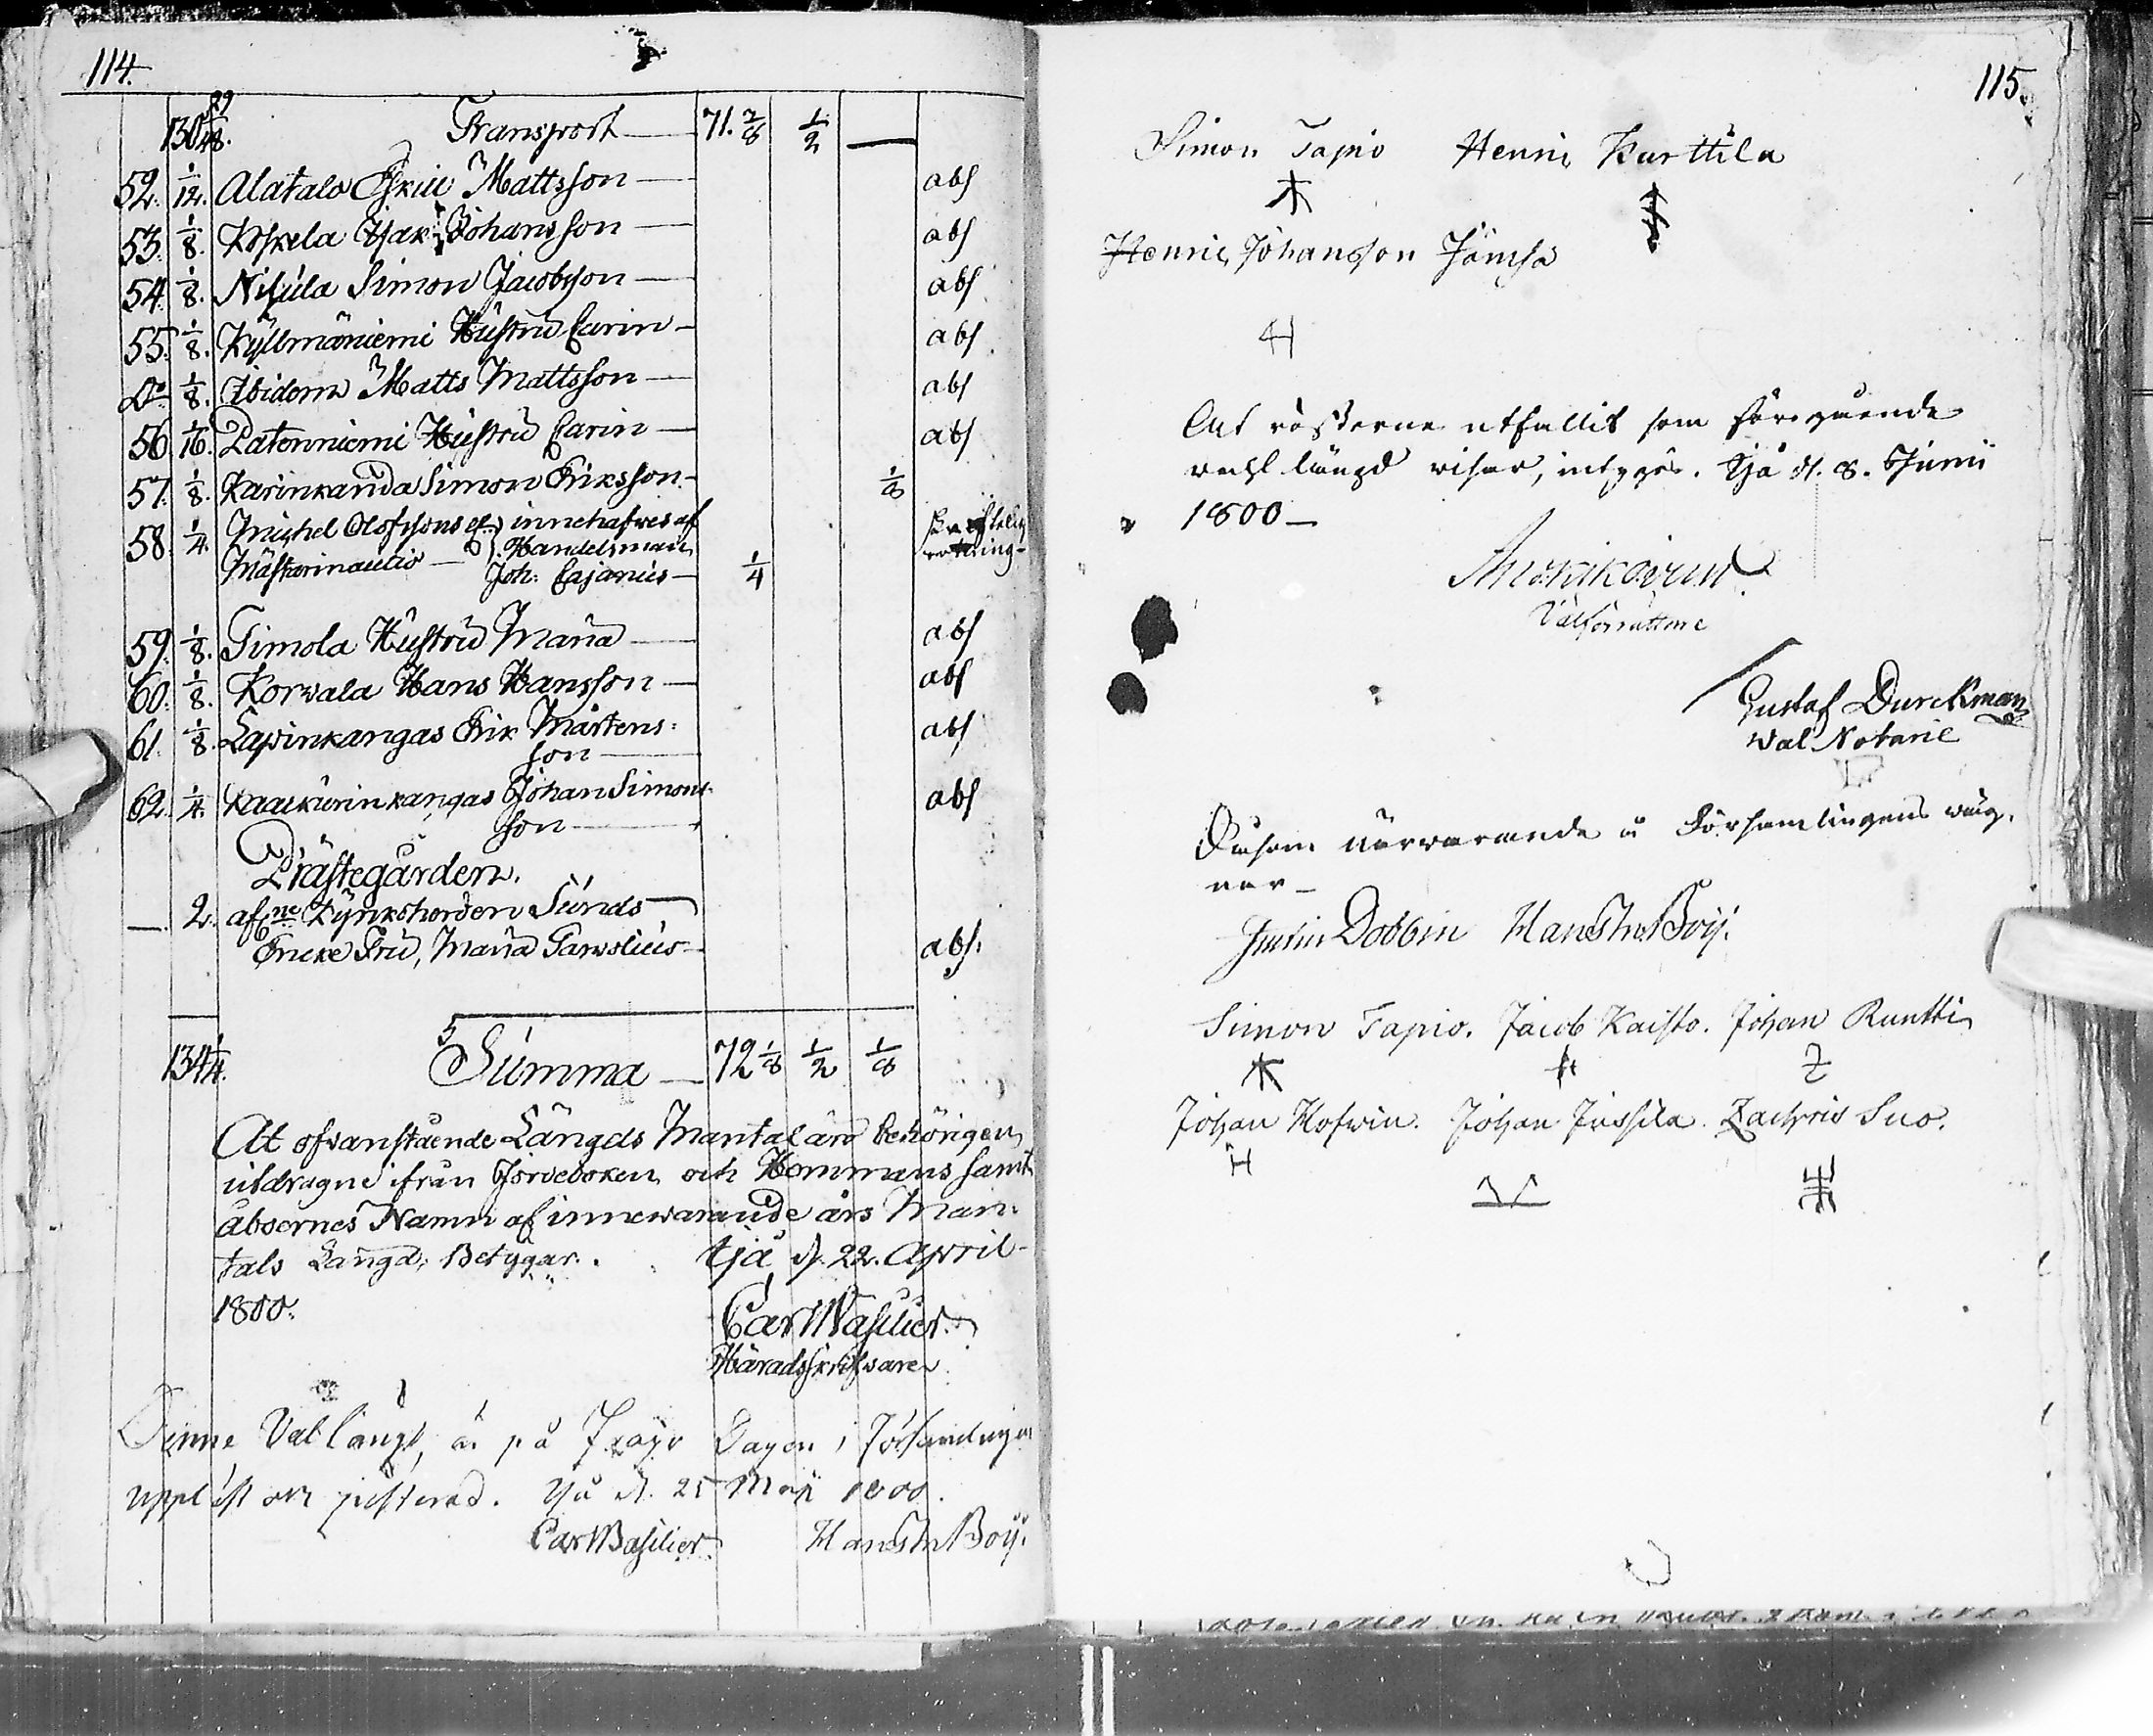 114.
130 29/48. Transport 71. 7/8 1/2 —
52. 1/12. Alatalo Eskill Mattsson — abs
53. 1/8. Koskela Isak Johansson — abs
54. 1/8. Nisula Simon Jacobsson — abs
55. 1/8. Kyllmäniemi Hustru Carin — abs
Do 1/8. Widom Matts Mattsson — abs
56. 1/16. Patonniemi Hustru Carin — abs
57. 1/8. Karinkanda Simon Eriksson — 1/8
58. 1/4. Michel Olofssons el. innehafves af skriftelig
Handelsman
Mästarinautio — Joh: Cajanus — 1/4
59. 1/8. Timola Hustru Maria — abs
60. 1/8. Korwala Hans Hansson — abs
61. 1/8. Lapinkangas Erik Mårtens:
son — abs
62. 1/4. Kaakurinkangas Johan Simons:
son — abs
Prästegården.
—. 2. afne Kyrkoherden Sunds
Encke Fru, Maria Carolius — abs.
134 1/4. 5 Summa — 72 1/8 1/2 1/8
At ofvanstående Längds Mantal äro behörigen
utdragne ifrån Jordeboken och Hemmans samt
åboernes Namn af innewarande års Man:
tals Längd, Betygar. Ijå d. 22. April
1800.
Carl Basilier.
Häradsskrifvare
Denne Val längd, är på Dagen i Församlingen
uppläst och justerad. Ijå d. 25 Maji 1800.
Carl Basilier. Hans Hr Boij.
115.
Simon Tapio Henric Kurttila
Henric Johansson Jämsä
Att rösterne utfallit som föregående
wahl längd wiser, intygas. Ijå d. 8. Junii
1800 —
Valförrättare
Gustaf Durchman
Wal Notarie
Såsom närwarande å Församlingens wäg.
nar —
Dobbin Hans Hr Boij.
Simon Tapio. Jacob Kaisto. Johan Runtti
Johan Hofwin. Johan Jussila. Zachris Suo.